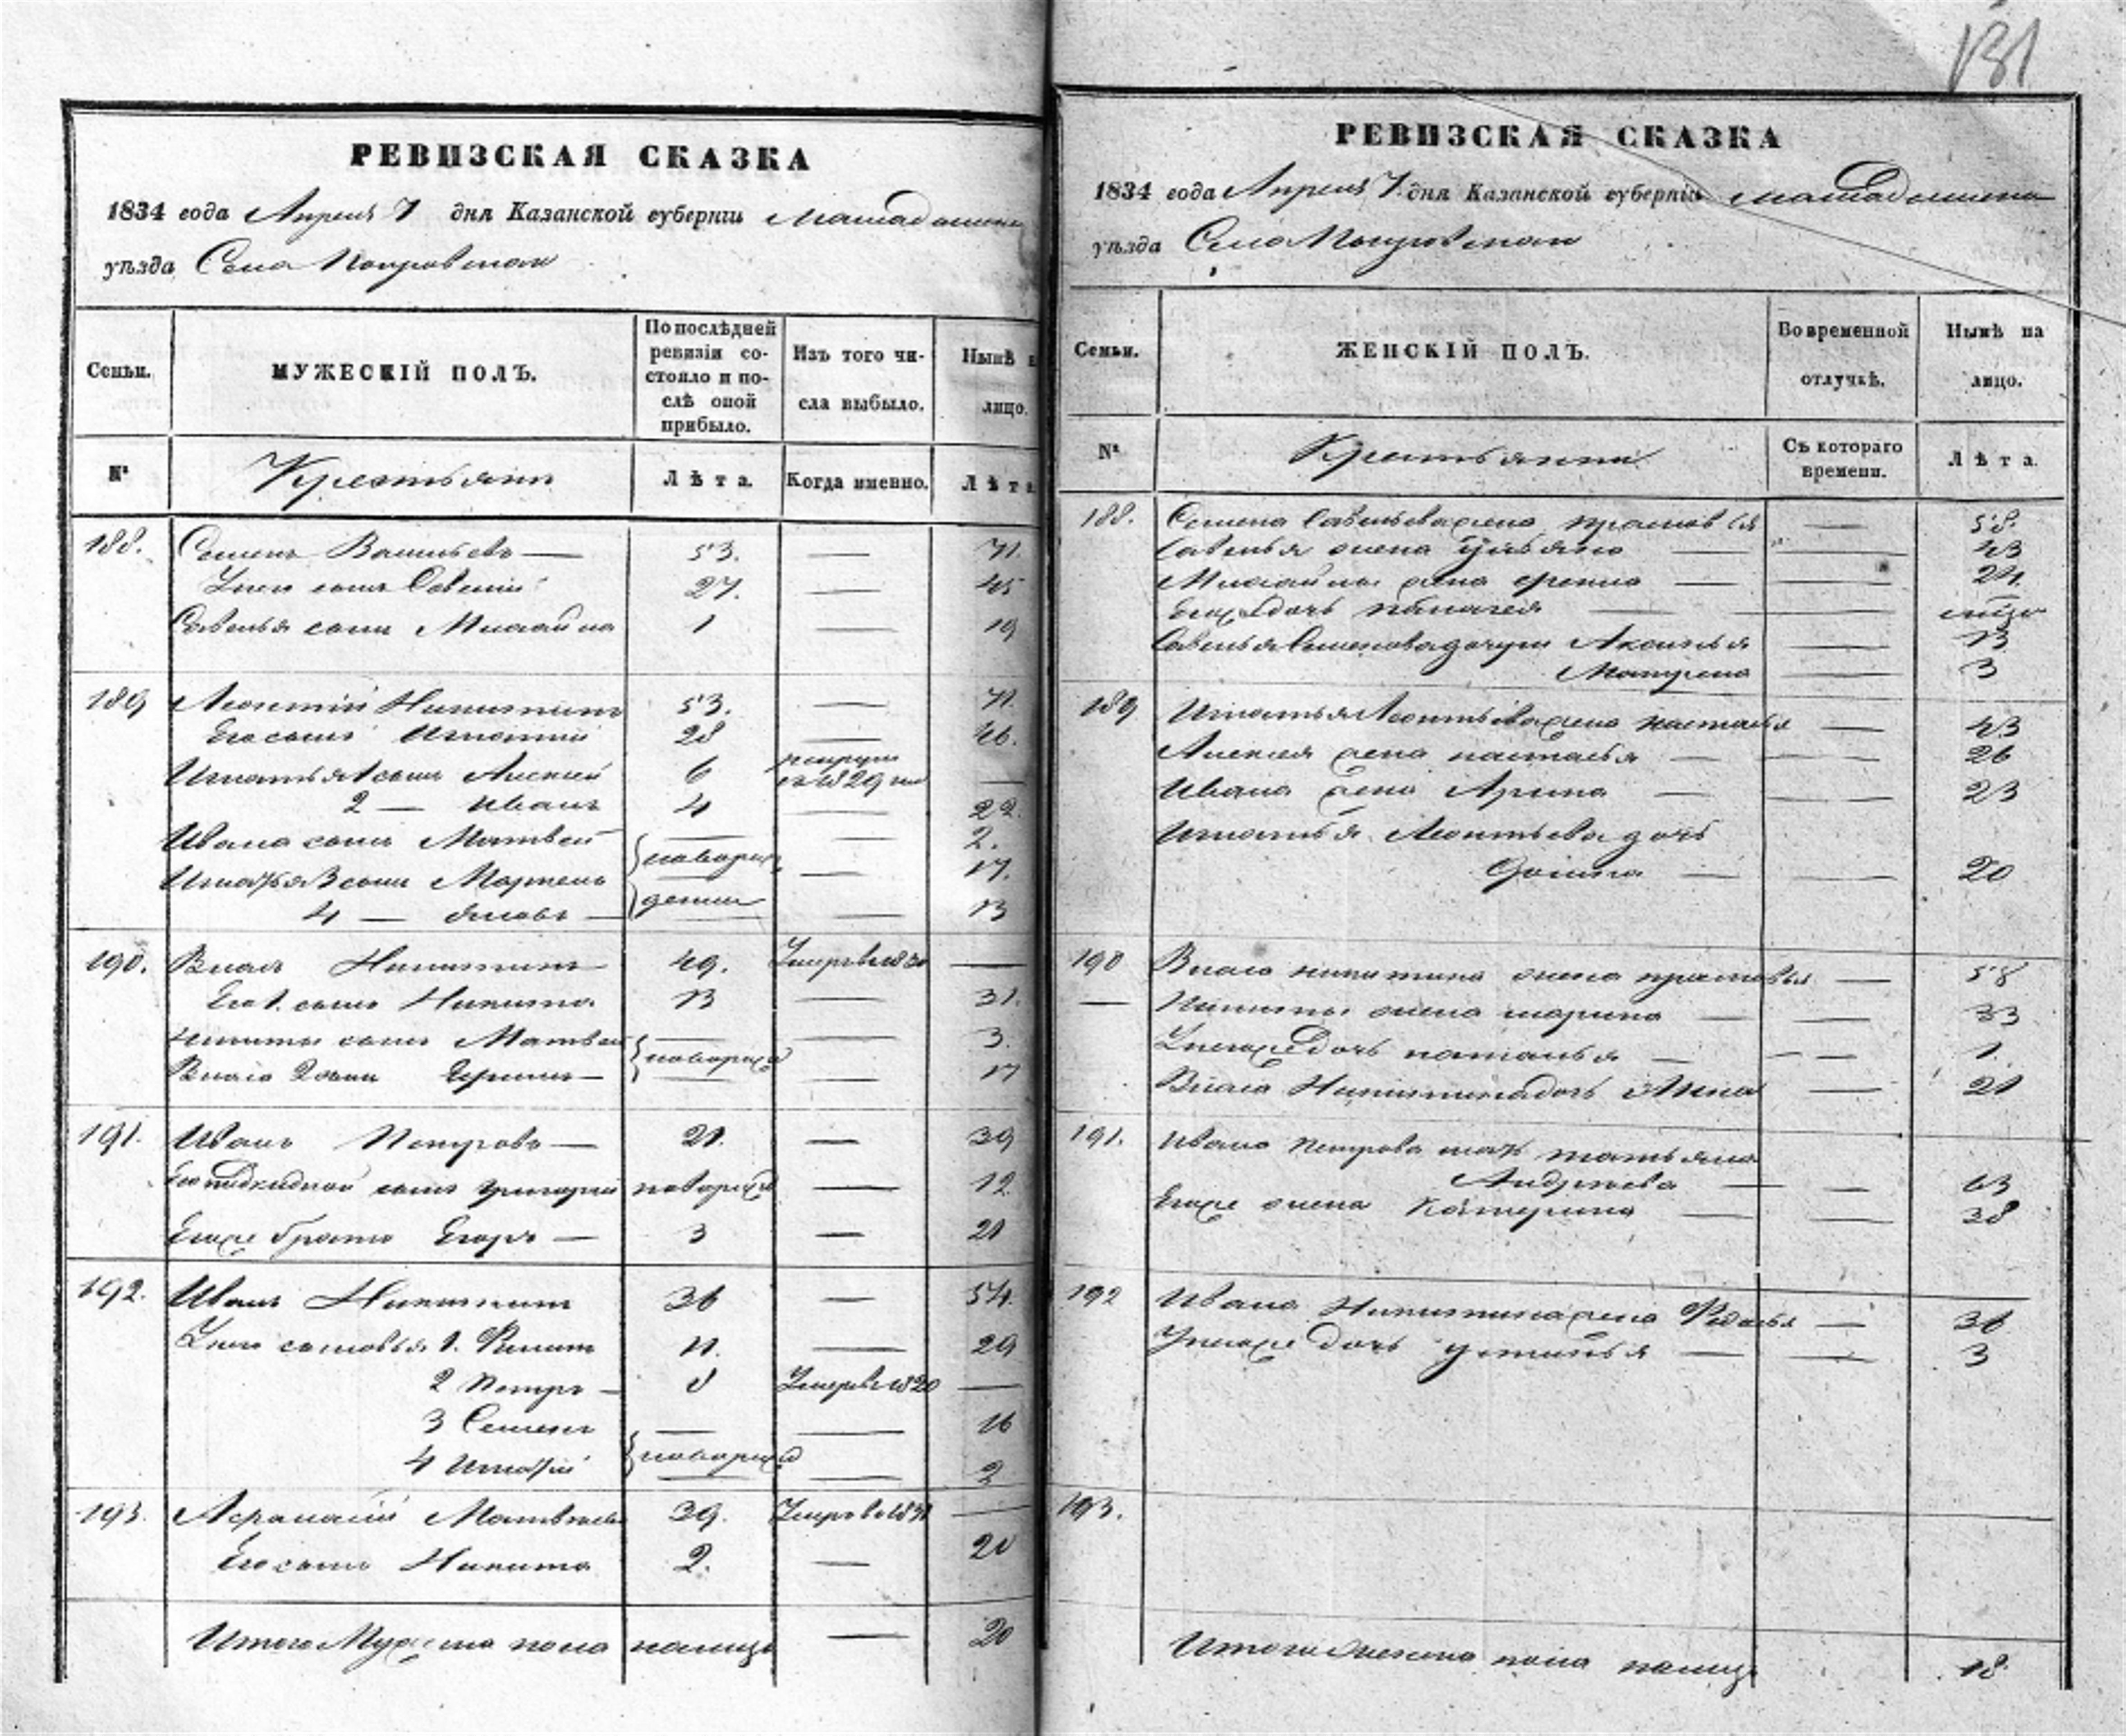 РЕВИЗСКАЯ СКАЗКА
1834 года Апреля 7 дня Казанской губерніи Мамадышска
уѣзда Села Покровскаго
Семьи.
МУЖЕСКІЙ ПОЛЪ.
По послѣдней
ревизіи со-
стояло и по-
слѣ оной
прибыло.
Изъ того чи-
сла выбыло.
Нынѣ
лицо.
№
Крестьяне
Лѣта.
Когда именно.
Лѣта
188. Семенъ Васильевъ — 53. — 71.
У него сынъ Савелій 27. — 45
Савелья сынъ Михайла 1 — 19
189 Леонтій Никитинъ 53. — 71.
Его сынъ Игнатій 28 — 46.
Игнатья 1 сынъ Алексей 6 рекрутъ въ 1829 —
2 — Иванъ 4 — 22.
Ивана сынъ Матвей — — 2.
новорож
Игнатья 3 сынъ — 17.
4 — Яковъ — — 13
190. Никитинъ 49. Умеръ в 1830 —
Его 1. сынъ Никита 13 — 31.
Никиты сынъ Матвей — — 3.
новорожд
2 сынъ — — 17
191. Иванъ Петровъ — 21. — 39
Его сынъ Григорей новорожд — 12.
Егоже братъ Егоръ — 3 — 21
192. Иванъ Никитинъ 36 — 54.
У него сыновья 1. Филипъ 11. — 29
2 Петръ — 8 Умеръ в 1820 —
3 Семенъ — — 16
новорожд
4 Игнатій — — 2
193. Афанасій Матвеевъ 39. Умеръ в 1831 —
Его сынъ Никита 2. — 20
Итого Мужеска пола налицо — 20
131
РЕВИЗСКАЯ СКАЗКА
1834 года Апреля 7 дня Казанской губерніи Мамадышска
уѣзда Села Покровскаго
Семьи.
ЖЕНСКІЙ ПОЛЪ.
Во временной
отлучкѣ.
Нынѣ на
лицо.
№
Крестьянки
Съ котораго
времени.
Лѣта.
188. Семена жена — 58.
Савелья жена Ульяна — — 43
Михайлы жена — — 24.
Егоже дочь Пелагея — —
Савелья Семенова дочери Аксинья — 13
Матрена — 3
189 Игнатья Леонтьева жена Настасья — 43
Алексея жена Настасья — — 26
Ивана жена Арина — — 23
Игнатья Леонтьева дочь
— — 20
190 Никитина жена Прасковья — 58
— Никиты жена Марина — — 33
У негоже дочь Наталья — — 1
Никитина дочь Анна — 21
191. Ивана Петрова мать Татьяна
Андреева — — 63
Егоже жена Катерина — — 38
192 Ивана Никитина жена Федосья — 36
У негоже дочь Устинья — — 3
193.
Итого Женска пола налицо 18